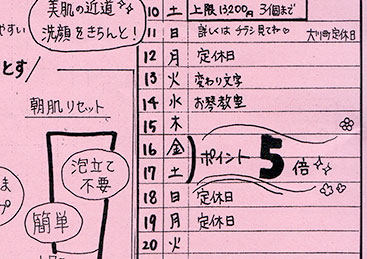 美肌の近道
洗顔をきちんと!
やすい
とす
朝肌リセット
泡立て
不要
簡単
10 土 上限13,200円 3個まで
11 日 詳しくはチラシ見てね♡ 大川町定休日
12 月 定休日
13 火 変わり文字
14 水 お琴教室
15 木
16 金
17 土
ポイント5倍
18 日 定休日
19 月 定休日
20 火